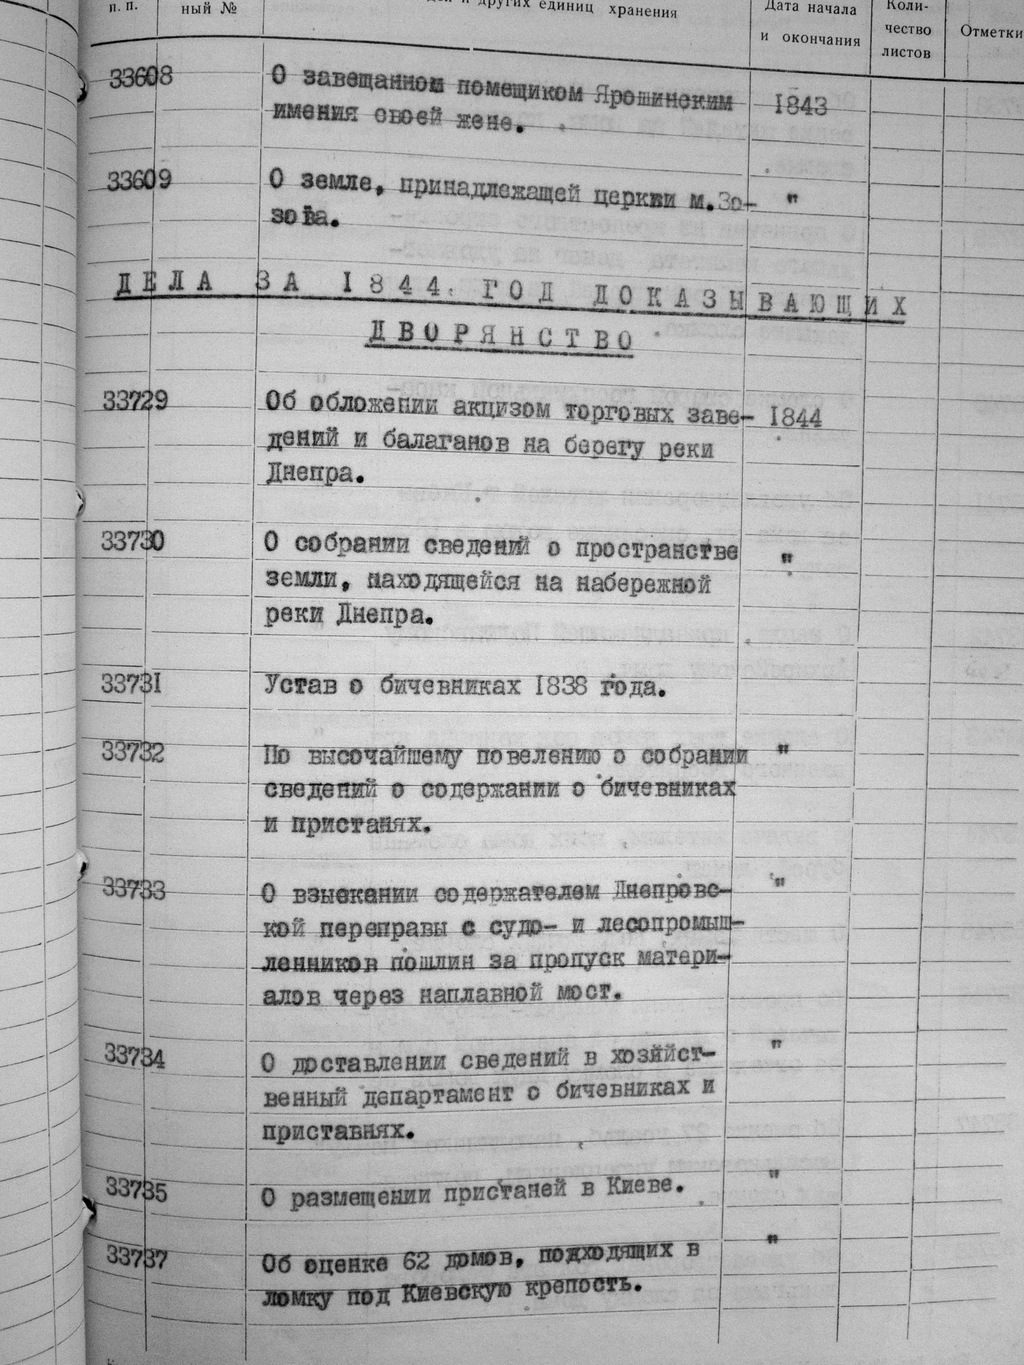 п. п.
ный №
и других единиц хранения
Дата начала
и окончания
Коли-
чество
листов
Отметки
33608 О завещанном помещиком Ярошинским 1843
имения своей жене.
33609 О земле, принадлежащей церкви м.Зо- "
зова.
ДЕЛА ЗА 1844 ГОД ДОКАЗЫВАЮЩИХ
ДВОРЯНСТВО
33729 Об обложении акцизом торговых заве- 1844
дений и балаганов на берегу реки
Днепра.
33730 О собрании сведений о пространстве "
земли, находящейся на набережной
реки Днепра.
33731 Устав о бичевниках 1838 года.
33732 По высочайшему повелению о собрании "
сведений о содержании о бичевниках
и пристанях.
33733 О взыскании содержателем Днепровс- "
кой переправы с судо- и лесопромыш-
ленников пошлин за пропуск матери-
алов через наплавной мост.
33734 О доставлении сведений в хозяйст- "
венный департамент о бичевниках и
приставнях.
33735 О размещении пристаней в Киеве. "
33737 Об оценке 62 домов, подходящих в "
ломку под Киевскую крепость.